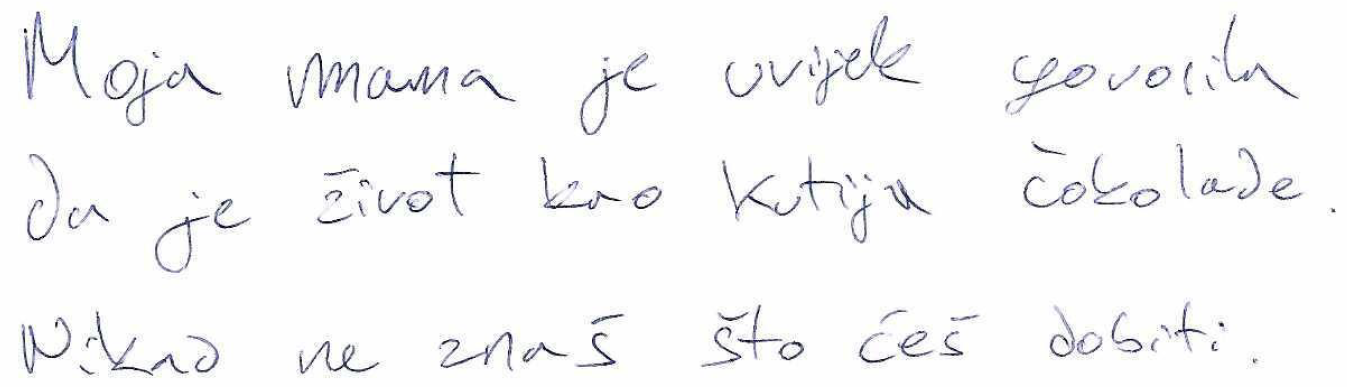 Moja mama je uvijek govorila
da je život kao kutija čokolade.
Nikad ne znaš što ćeš dobiti.